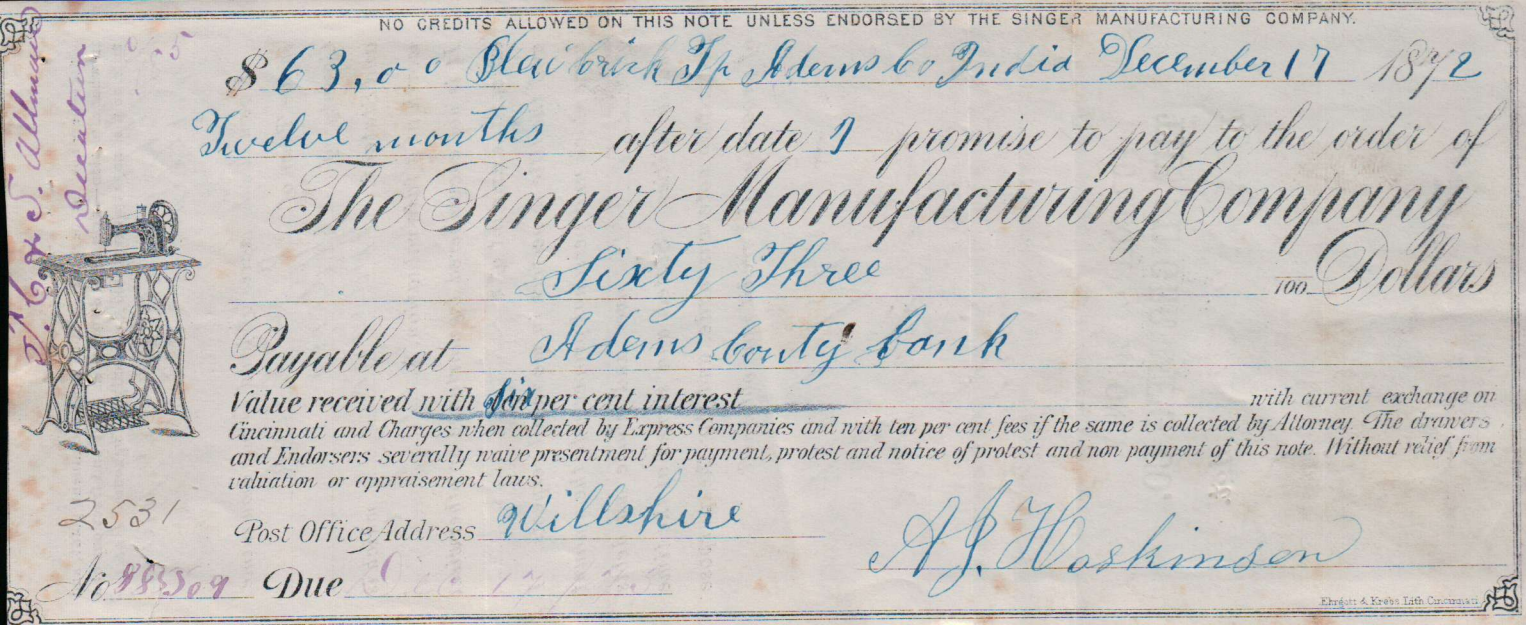 NO CREDITS ALLOWED ON THIS NOTE UNLESS ENDORSED BY THE SINGER MANUFACTURING COMPANY.
$ 63,00 Tp Adems Co India December 17 1872
Twelve months after date I promise to pay to the order of
The Singer Manufacturing Company
Sixty Three 100 Dollars
Payable at Adems Couty Bank
Value received with per cent interest with current exchange on
Cincinnati and Charges when collected by Express Companies and with ten per cent fees if the same is collected by Attorney. The drawers
and Endorsers severally waive presentment for payment, protest and notice of protest and non payment of this note. Without relief from
valuation or appraisement laws.
2531
Post Office Address Willshire
A J. Hoskinson
No Due
Ehrgott & Krebs Lith Cincinnati
Decatur